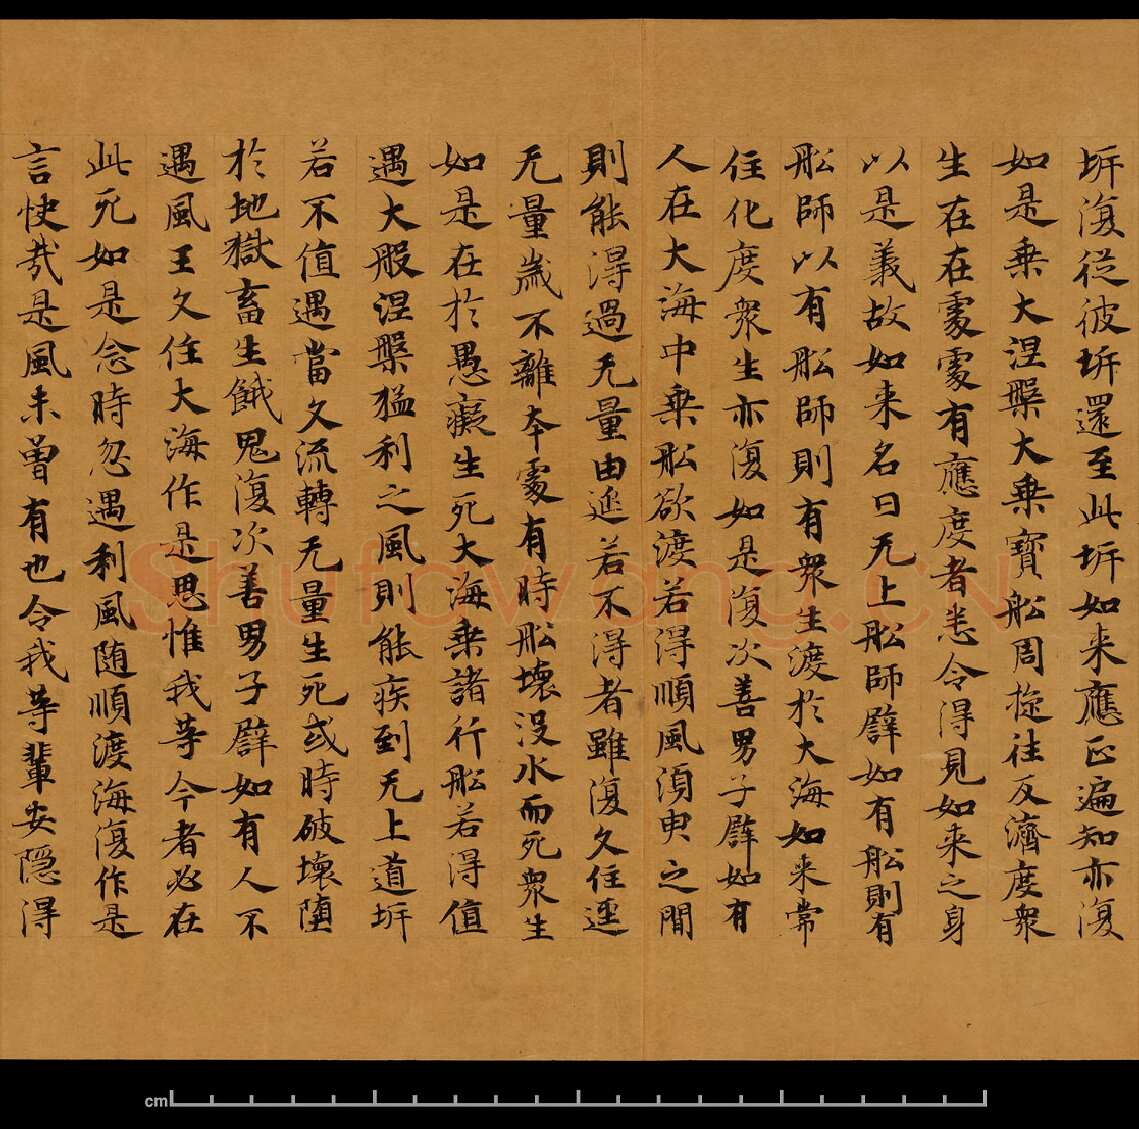 岸復從彼岸還至此岸如来應正遍知亦復
如是乗大涅槃大乗寶舩周旋往反濟度衆
生在在處處有應度者悉令得見如来之身
以是義故如来名曰无上舩師譬如有舩則有
舩師以有舩師則有衆生渡於大海如来常
住化度衆生亦復如是復次善男子譬如有
人在大海中乗舩欲渡若得順風湏臾之間
則能得過无量由延若不得者雖復久住逕
无量歲不離本處有時舩壞没水而死衆生
如是在於愚癡生死大海乗諸行舩若得值
遇大般涅槃猛利之風則能疾到无上道岸
若不值遇當久流轉无量生死或時破壞墮
於地獄畜生餓鬼復次善男子譬如有人不
遇風王久住大海作是思惟我等今者必在
此死如是念時忽遇利風随順渡海復作是
言快哉是風未曽有也令我等輩安隱得
Shufawang.CN
cm